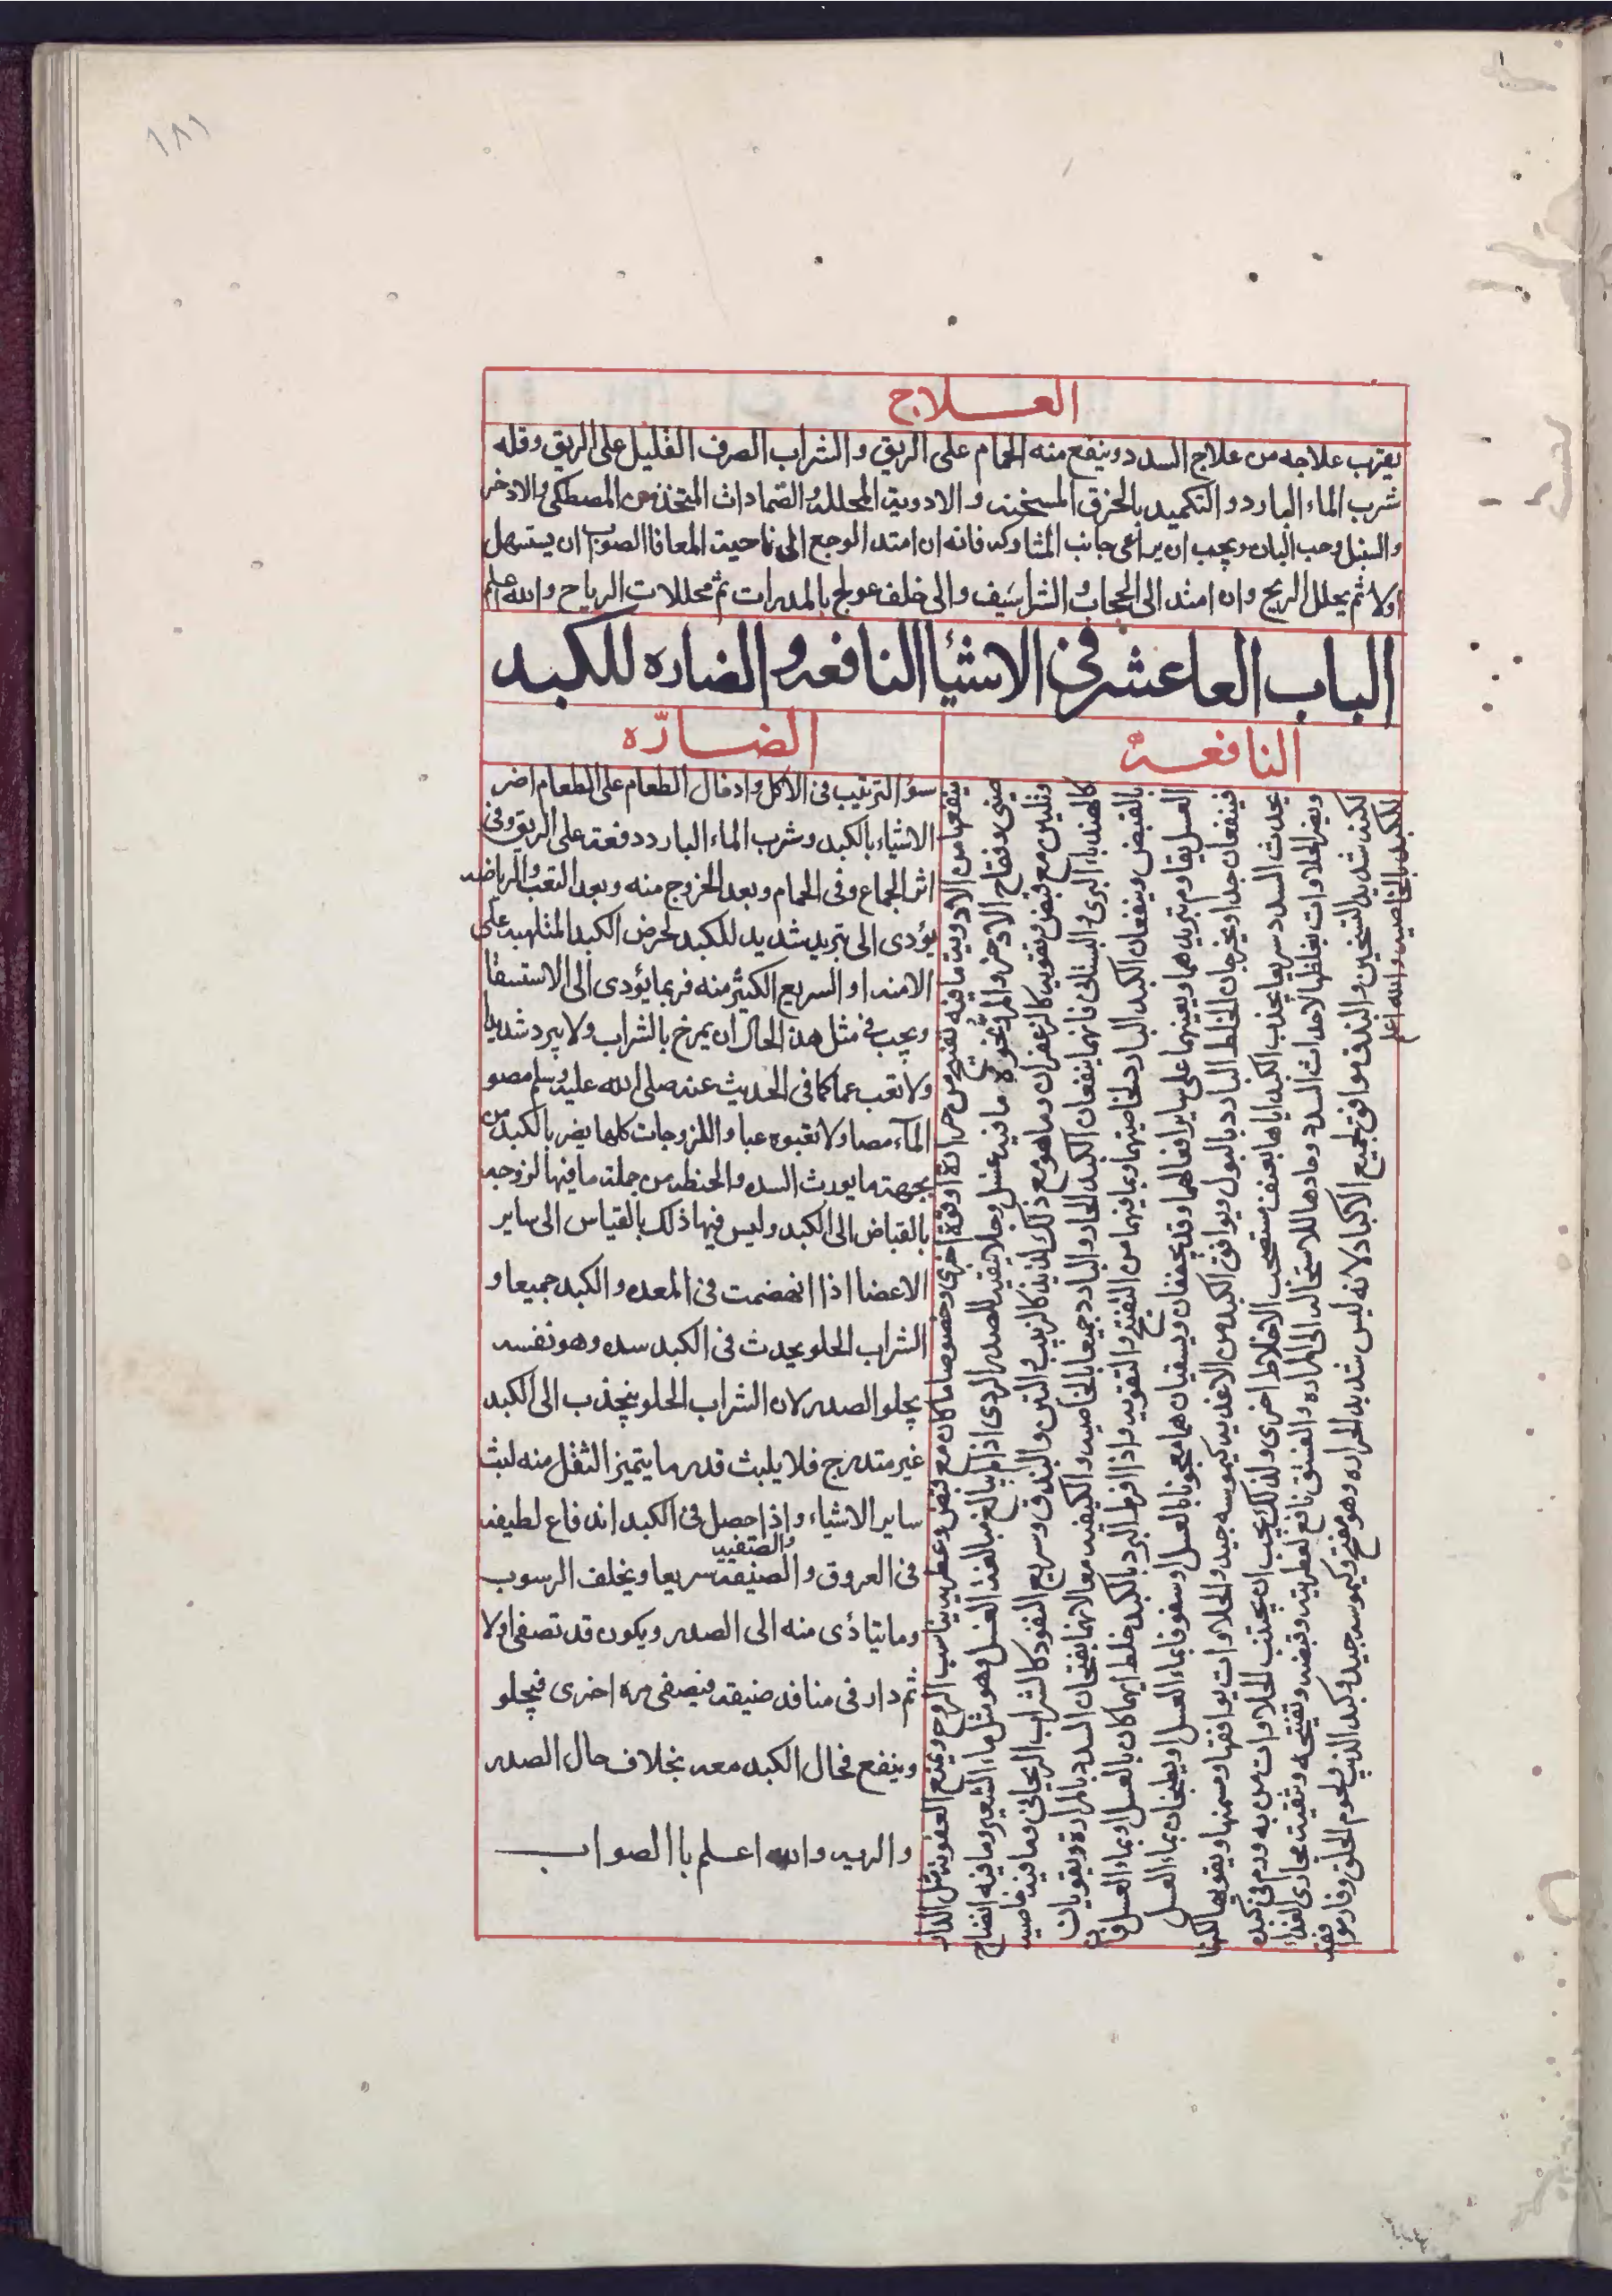 ١٨١
العـــلاج
يقرب علاجه من علاج السدد وينفع منه الحمام على الريق والشراب الصرف القليل على الريق وقله
شرب الماء البارد والتكميد بالخرق المسخنه والادوية المحلله والضمادات المتخذ من المصطكى والاذخر
والسنبل وحب البان ويجب ان يراعى جانب المشاركه فانه ان امتد الوجع الى ناحية المعا فالصوب ان يستسهل
اولا ثم يحلل الريح وان امتد الى الحجاب والشراسيف والى خلف عولج بالمدرات ثم محللات الرياح والله اعلم
الباب العاعشر في الاشيا النافعه والضاره للكبد
النافعـــة
ينفعها من الادوية ما فيه تفتيح من حرارة او قوة اخرى وخصوصا ما كان مع قبض وعطريه يناسب الروح ويمنع العفونه مثل الدار
صيني وفقاح الاذخر والمر ونحوه ما فيه غسل وجلا تنقيه للصديد الردى اذا لم يبالغ مبالغة الغسل وهو مثل ماء الشعير وما فيه انضاج
وتليين مع قبض وتقويه كالزعفران وما هو مع ذلك لذيذ كالزبيب والتين والبندق وسريع النفود كالشراب الريحاني وما فيه خاصيه
كالهندباء البرى والبستاني فانهما ينفعان الكبد الحار والبارد جميعا بالخاصيه والكيفيه معا لانهما يفتحان السدد بالمرارة ويقويان
بالقبض وينفعان الكبد البارد لخاصيتهما وبما فيهما من التفتيح والتقويه واذا افرط البرد بالكبد خلط ايهما كان بالعسل او بماء العسل فان
العسل يقاوم تبريدهما ويعينهما على ساير افعالهما وقد يجففان ويسقيان هما معجونا بالعسل او سفوفا بماء العسل او يطبخان بماء العسل
فينفعان جدا ويخرجان الخلط البارد بالبول ويوافق الكبد من الاغذيه كيموسه جيد والحلاوات يوافقها وتسمنها ويقويها لكنها
يحدث السدد سريعا يجذب الكبد اياها بعنف مستصحب الاخلاط اخرى ولذلك يجب ان يجتنب الحلاوات من به ورم في كبده
ويضر الحلاوات بغلظها لاحداث السدد وحادها للاستحاله الى المراره والفستق نافع لعطريته وقبضه وتفتيحه وتنقيته مجارى الغذاء
لكنه شديد التسخين والبندق موافق لجميع الاكباد لانه ليس شديد الحراره وهو مفتح وكيموسه جيد وكبد الذيب ولحوم الحلزون
للكبد بالخاصيه والله اعلم
الضـــارّه
سؤ الترتيب في الاكل وادخال الطعام على الطعام اضر
الاشياء بالكبد وشرب الماء البارد دفعة على الريق وفي
اثر الجماع وفى الحمام وبعد الخروج منه وبعد التعب والرياضه
يؤدى الى تبريد شديد للكبد لحرض الكبد المتلهبه على
الامتداد السريع الكثير منه فربما يؤدى الى الاستسقا
ويجب في مثل هذ الحال ان يمرخ بالشراب ولا يبرد شديدا
ولا تعب عبا كما في الحديث عنه صلى الله عليه وسلم مصو
المآء مصا ولا تعبوه عبا واللزوجات كلها يضر بالكبد من
جهة ما يورث السده والحنطه من جملة ما فيها لزوجه
بالقياض الى الكبد وليس فيها ذلك بالقياس الى ساير
الاعضا اذا انهضمت في المعده والكبد جميعا و
الشراب الحلو يحدث في الكبد سده وهو نفسه
يجلو الصدر لان الشراب الحلو ينجذب الى الكبد
غير متدرج فلا يلبث قدر ما يتميز الثفل منه لبث
ساير الاشياء واذا حصل في الكبد اندفاع لطيفه
والصتفييه
فى العروق والضيقه سريعا ويخلف الرسوب
وما يتأدى منه الى الصدر ويكون قد تصفى اولا
ثم دار فى منافد ضيقه فيصفى مره اخرى فيجلو
وينفع فحال الكبد معه بخلاف حال الصدر
والريه والله اعـــلم باالصواب